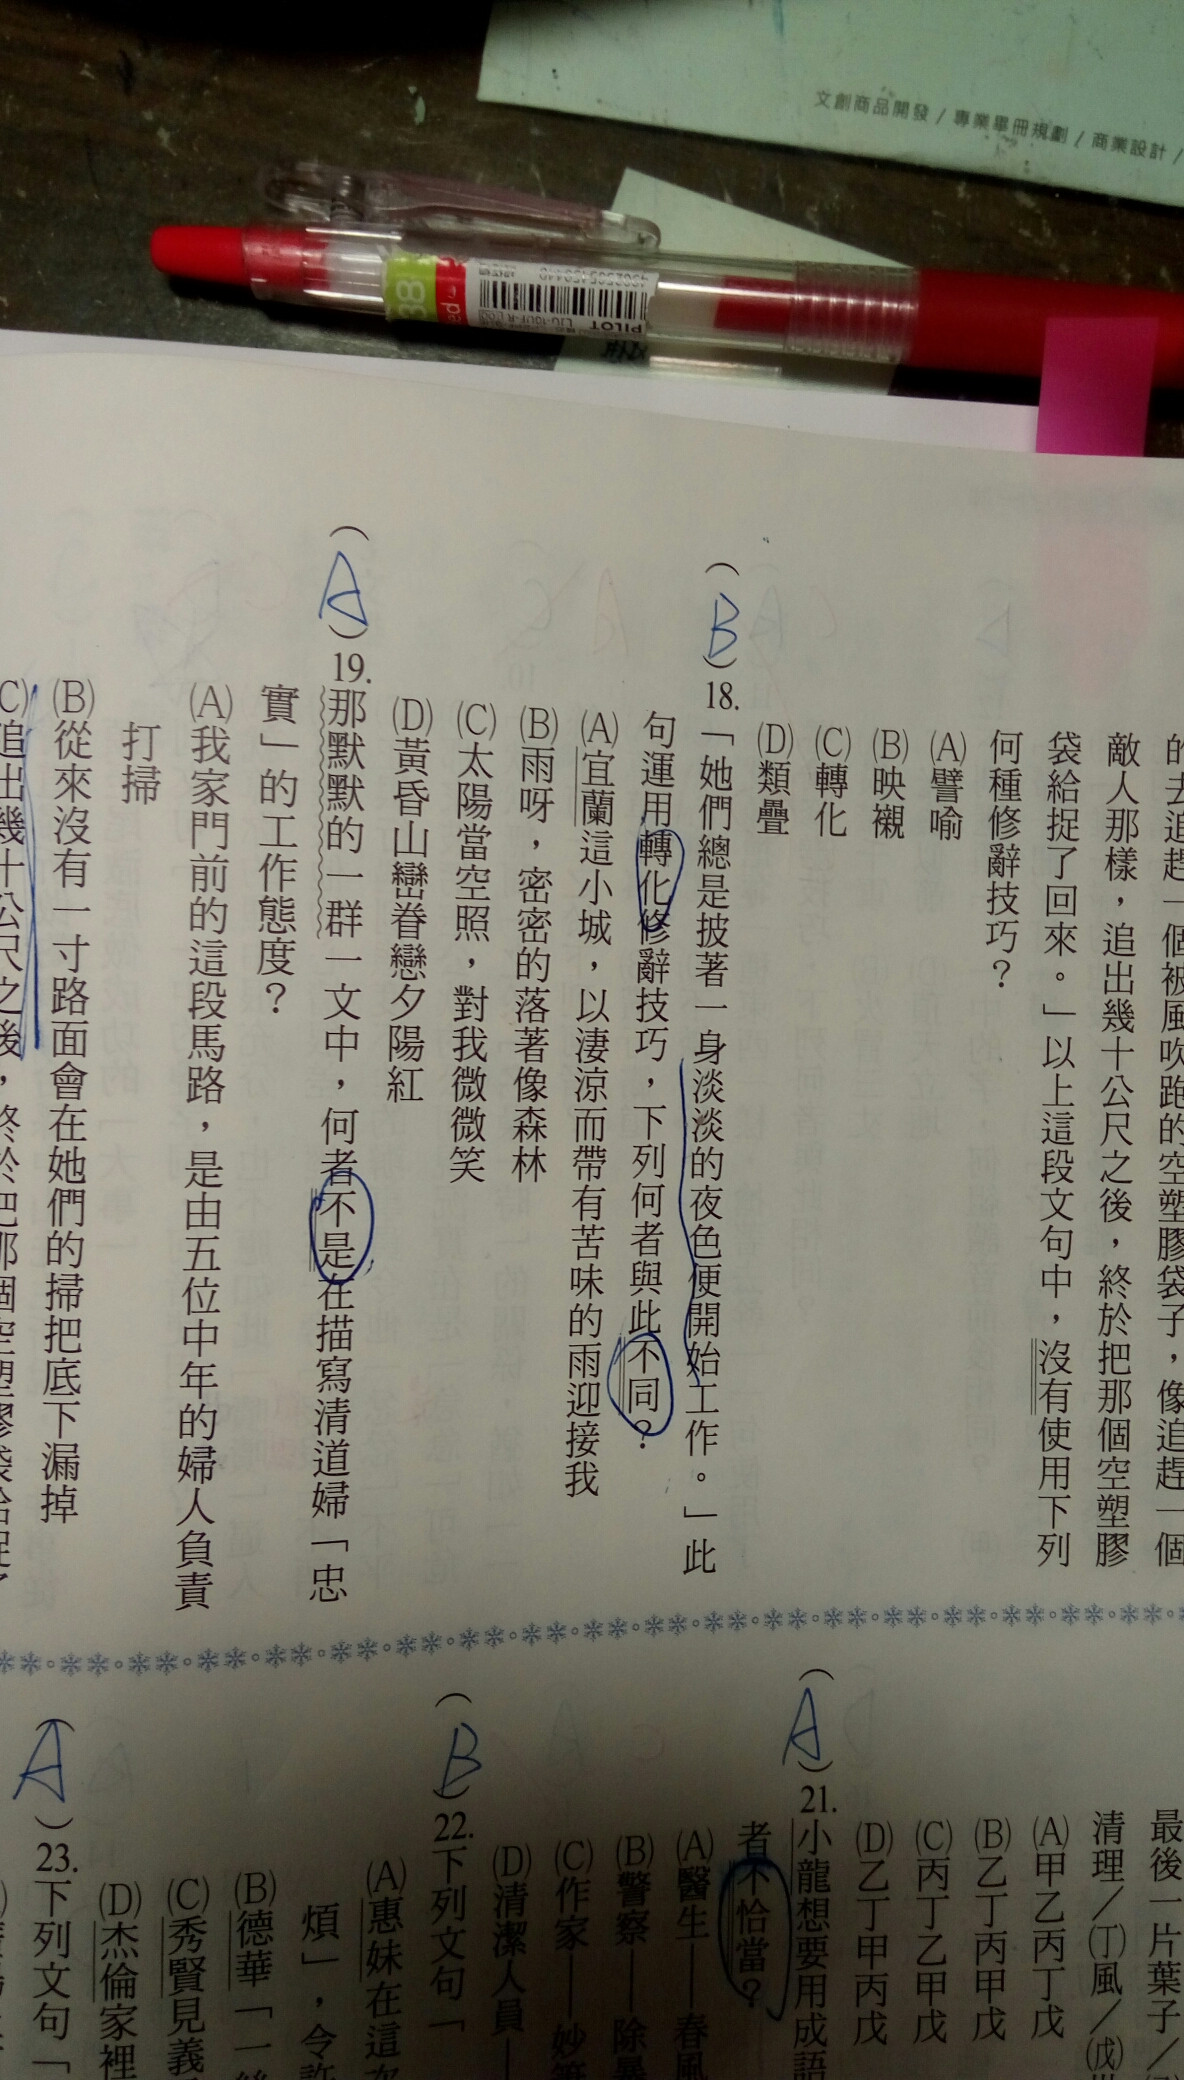 文創商品開發 / 專業畢冊規劃 / 商業設計 /
PILOT
的去追趕一個被風吹跑的空塑膠袋子，像追趕一個
敵人那樣，追出幾十公尺之後，終於把那個空塑膠
袋給捉了回來。」以上這段文句中，沒有使用下列
何種修辭技巧？
(A)譬喻
(B)映襯
(C)轉化
(D)類疊
( B )18.「她們總是披著一身淡淡的夜色便開始工作。」此
句運用轉化修辭技巧，下列何者與此不同？
(A)宜蘭這小城，以淒涼而帶有苦味的雨迎接我
(B)雨呀，密密的落著像森林
(C)太陽當空照，對我微微笑
(D)黃昏山巒眷戀夕陽紅
( A )19.那默默的一群一文中，何者不是在描寫清道婦「忠
實」的工作態度？
(A)我家門前的這段馬路，是由五位中年的婦人負責
打掃
(B)從來沒有一寸路面會在她們的掃把底下漏掉
(C)追出幾十公尺之後，終於把那個空塑膠袋給捉了
最後一片葉子／
清理／(丁)風／(戊)
(A)甲乙丙丁戊
(B)乙丁丙甲戊
(C)丙丁乙甲戊
(D)乙丁甲丙戊
( A )21.小龍想要用成語
者不恰當？
(A)醫生——春風
(B)警察——除暴
(C)作家——妙筆
(D)清潔人員—
( B )22.下列文句「
(A)惠妹在這次
煩」，令許
(B)德華「一絲
(C)秀賢見義
(D)杰倫家裡
( A )23.下列文句「